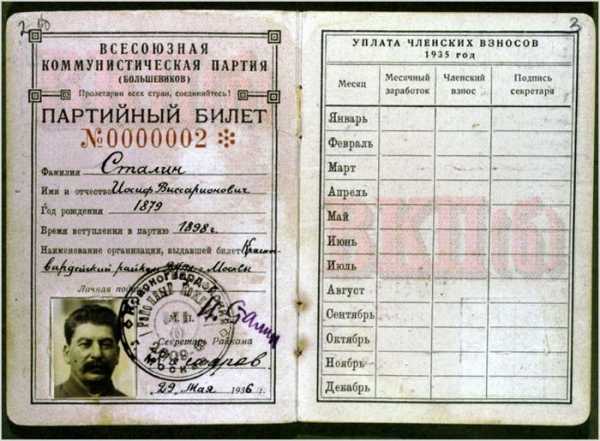 ВСЕСОЮЗНАЯ
КОММУНИСТИЧЕСКАЯ ПАРТИЯ
(БОЛЬШЕВИКОВ)
Пролетарии всех стран, соединяйтесь!
ПАРТИЙНЫЙ БИЛЕТ
№0000002
Фамилия Сталин
Имя и отчество Иосиф Виссарионович
Год рождения 1879
Время вступления в партию 1898 г.
Наименование организации, выдавшей билет Красно-
гвардейский райком г. Москвы
Личная
М. П. Сталин
Секретарь Райкома
29 мая 1936 г.
3
УПЛАТА ЧЛЕНСКИХ ВЗНОСОВ
1935 год
Месяц Месячный заработок Членский взнос Подпись секретаря
Январь
Февраль
Март
Апрель
Май
ВКП(б)
Июнь
Июль
Август
Сентябрь
Октябрь
Ноябрь
Декабрь